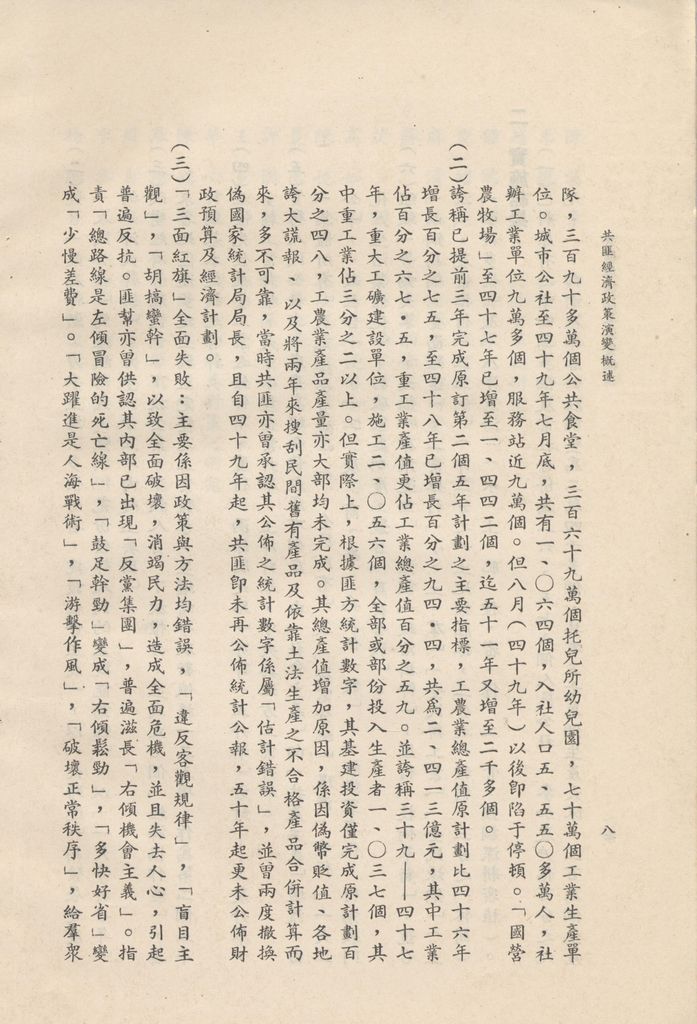 共匪經濟政策演變概述
八
隊，三百九十多萬個公共食堂，三百六十九萬個托兒所幼兒園，七十萬個工業生產單
位。城市公社至四十九年七月底，共有一、〇六四個，入社人口五、五五〇多萬人，社
辦工業單位九萬多個，服務站近九萬個。但八月（四十九年）以後卽陷于停頓。「國營
農牧場」至四十七年已增至一、四四二個，迄五十一年又增至二千多個。
（二）誇稱已提前三年完成原訂第二個五年計劃之主要指標，工農業總產值原計劃比四十六年
增長百分之七五，至四十八年已增長百分之九四・四，共爲二、四一三億元，其中工業
佔百分之六七・五，重工業產值更佔工業總產值百分之五九。並誇稱三十九——四十七
年，重大工礦建設單位，施工二、〇五六個，全部或部份投入生產者一、〇三七個，其
中重工業佔三分之二以上。但實際上，根據匪方統計數字，其基建投資僅完成原計劃百
分之四八，工農業產品產量亦大部均未完成。其總產值增加原因，係因僞幣貶值、各地
誇大謊報、以及將兩年來搜刮民間舊有產品及依靠土法生產之不合格產品合併計算而
來，多不可靠，當時共匪亦曾承認其公佈之統計數字係屬「估計錯誤」，並曾兩度撤換
僞國家統計局局長，且自四十九年起，共匪卽未再公佈統計公報，五十年起更未公佈財
政預算及經濟計劃。
（三）「三面紅旗」全面失敗：主要係因政策與方法均錯誤，「違反客觀規律」，「盲目主
觀」，「胡搞蠻幹」，以致全面破壞，消竭民力，造成全面危機，並且失去人心，引起
普遍反抗。匪幫亦曾供認其內部已出現「反黨集團」，普遍滋長「右傾機會主義」。指
責「總路線是左傾冒險的死亡線」，「鼓足幹勁」變成「右傾鬆勁」，「多快好省」變
成「少慢差費」。「大躍進是人海戰術」，「游擊作風」，「破壞正常秩序」，給羣衆